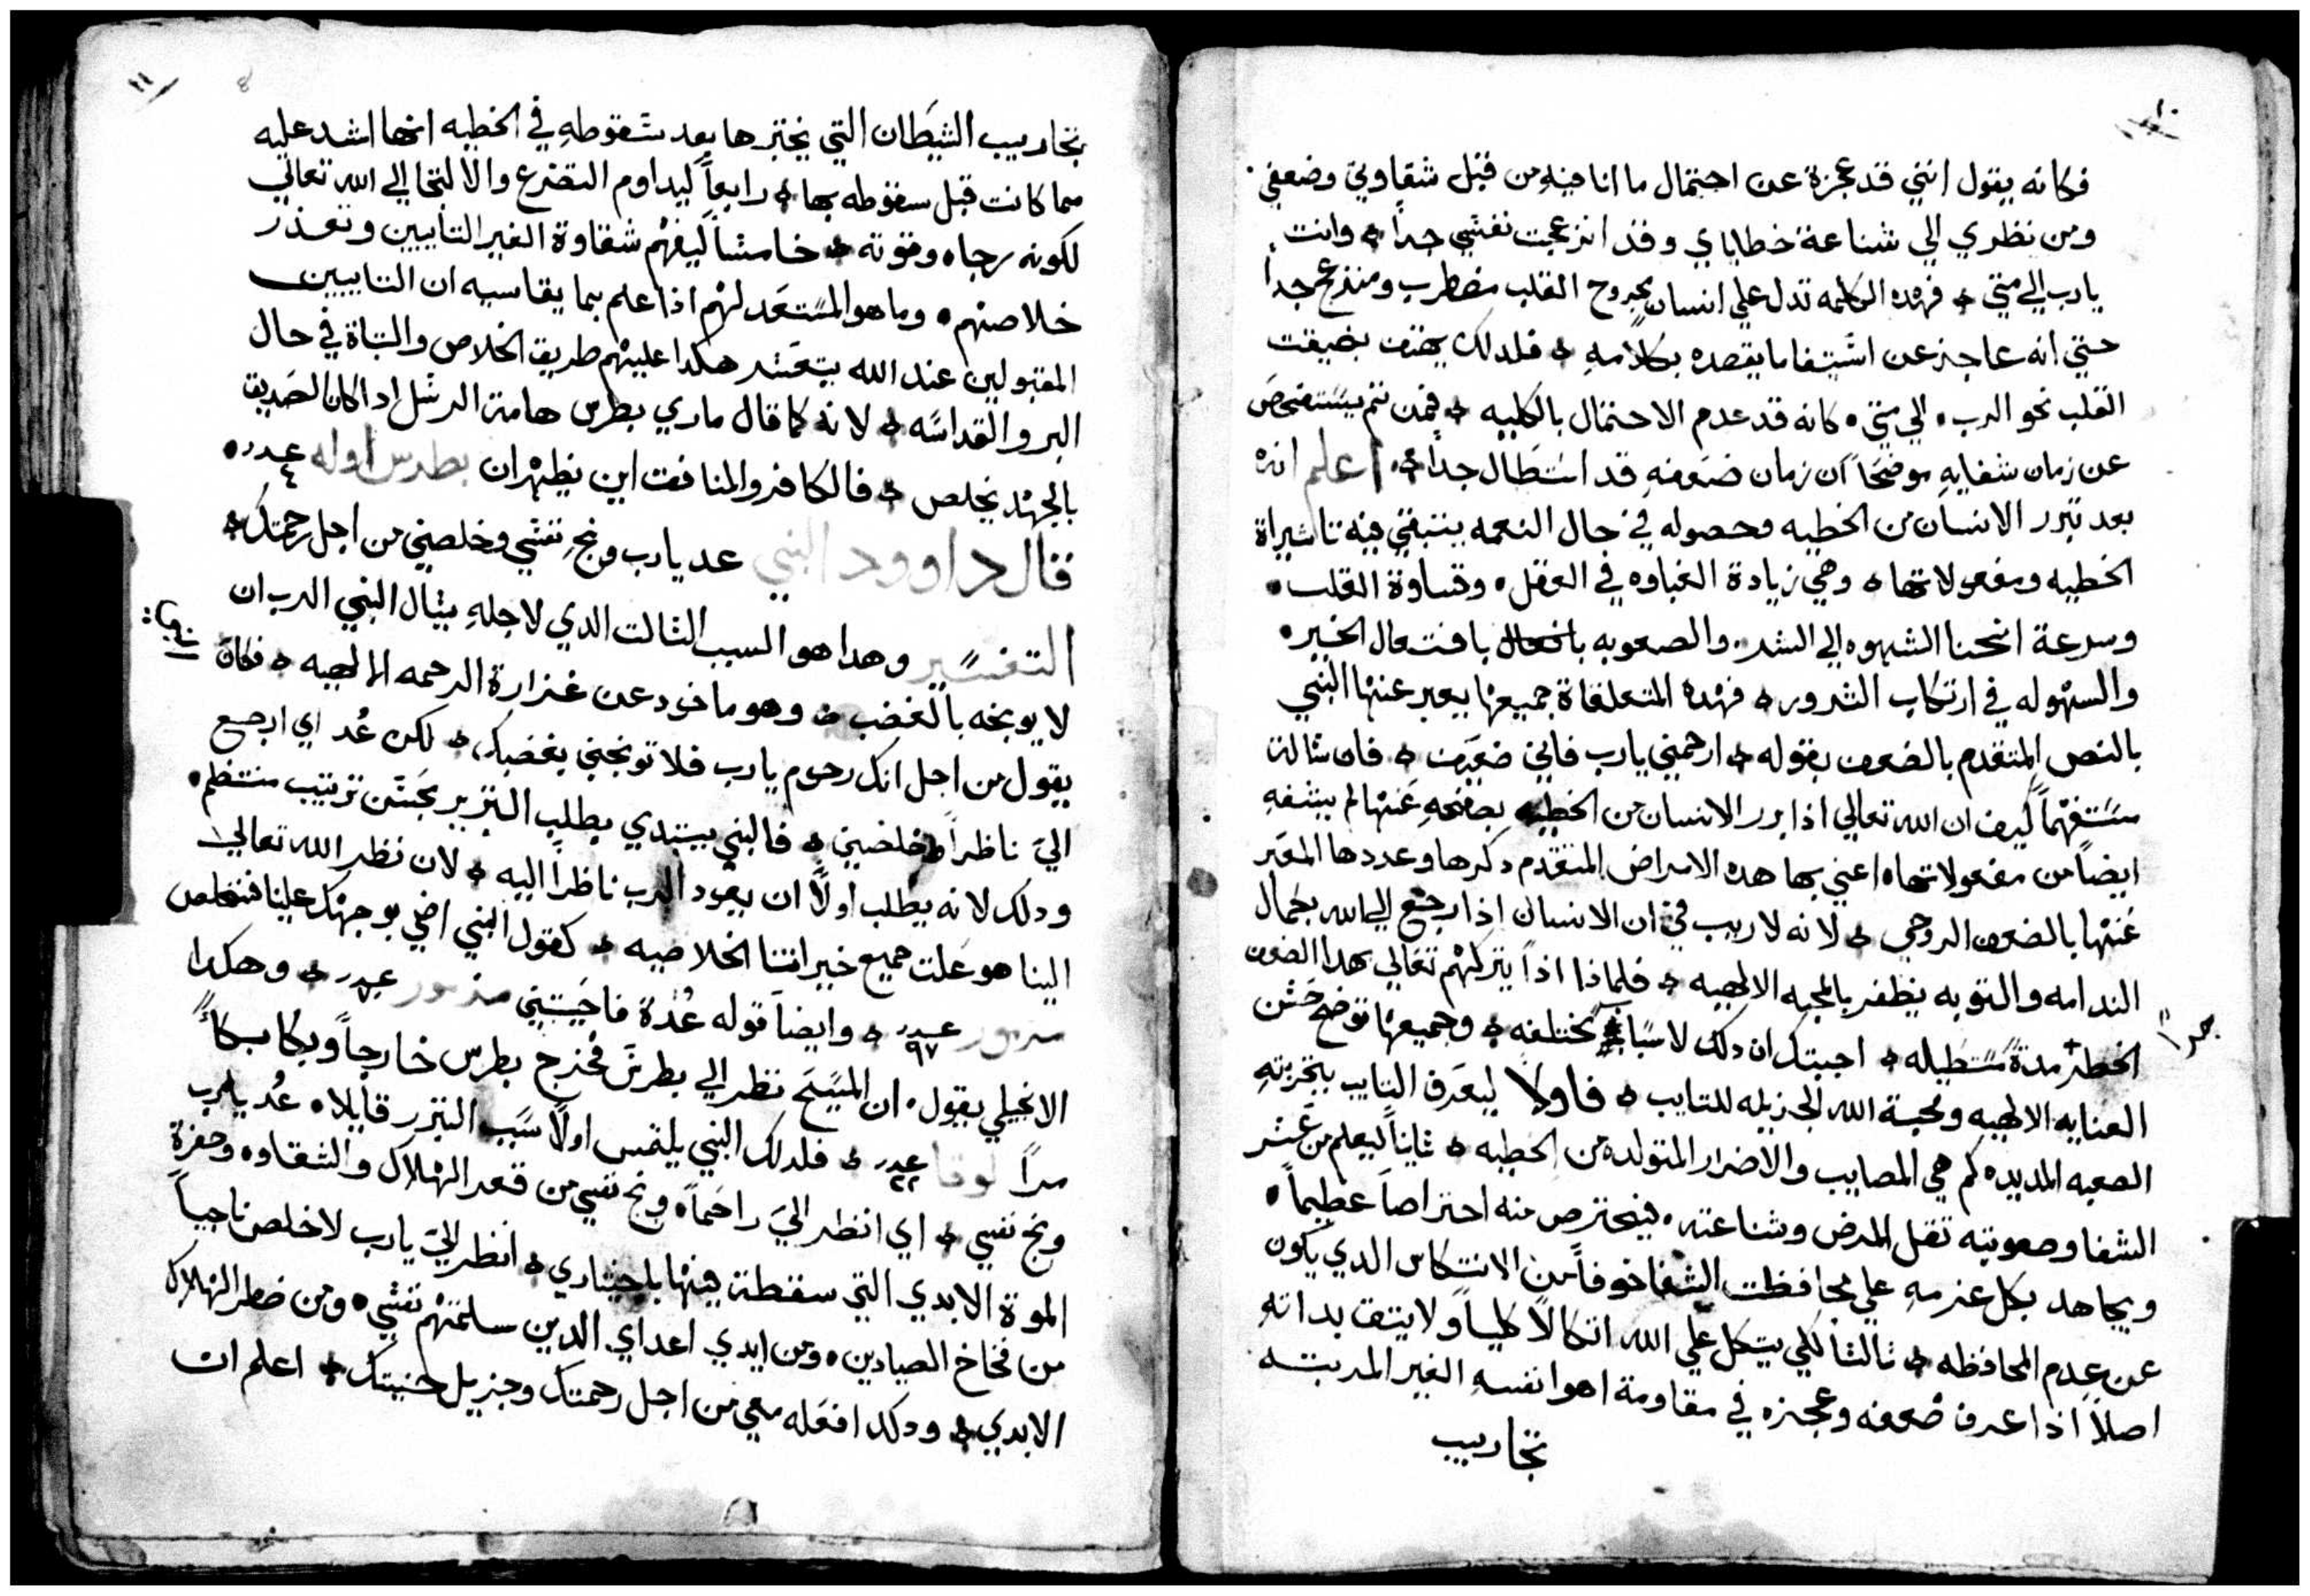 ١٠
فكانه يقول انني قد عجزة عن احتمال ما انا فيهِ من قبل شقاوتي وضعفي
ومن نظري الي شناعة خطاياي وقد انزعجت نفسي جداً وانت
يارب الي متي فهده الكلمه تدل علي انسان مجروح القلب مضطرب ومنذعج جداً
حتي انه عاجز عن اشتيفا ما يقصده بكلامهِ فلدلك يهتف بضيقت
القلب نحو الرب الي متي كانه قد عدم الاحتمال بالكليه فمن تم يستفحص
عن زمان شفايهِ موضحاً ان زمان ضعفهِ قد استطال جداً اعلم انه
بعد تبرر الانسان من الخطيه وحصوله في حال النعمه يتبقي فيه تاتيراة
الخطيه ومفعولاتها وهي زيادة الغباوه في العقل وقساوة القلب
وسرعة انحنا الشهوه الي الشر والصعوبه بافتعال الخير
والسهوله في ارتكاب الشرور فهده المتعلقاة جميعها يعبر عنها النبي
بالنص المتقدم بالضعف بقوله ارحمني يارب فاني ضعيف فان شالة
مستفهماً كيف ان الله تعالي اذا برر الانسان من الخطيه بصفحهِ عنها لم يشفهِ
ايضاً من مفعولاتها اعني بها هده الامراض المتقدم دكرها وعددها المعبر
عنها بالضعف الروحي لانه لا ريب في ان الانسان اذا رجع الي الله بكمال
الندامه والتوبه يظفر بالمحبه الالهيه فلماذا اذاً يتركهم تعالي بهدا الضعف
الخطر مدةً مستطيله اجبتك ان دلك لاسباب مختلفه وجميعها توضح حسن
العنايه الالهيه ومحبة الله الجزيله للتايب فاولاً ليعرف التايب بتجربتهِ
الصعبه المديده كم هي المصايب والاضرار المتولده من الخطيه ثانياً ليعلم من عسر
الشفا وصعوبته تقل المرض وشناعته فيحترص منه احتراصاً عظيماً
ويجاهد بكل عزمهِ علي محافظت الشفا خوفاً من الانتكاس الدي يكون
عن عدم المحافظه ثالثا لكي يتكل علي الله اتكالاً كلياً ولا يتق بداتهِ
اصلاً اذا عرف ضعفه وعجزه في مقاومة اهوا نفسهِ الغير المرتبه
تجاريب
١١
8
تجاريب الشيطان التي يختبرها بعد سقوطهِ في الخطيه انها اشد عليه
مما كانت قبل سقوطه بها رابعاً ليداوم التضرع والالتجا الي الله تعالي
لكونه رجاه وقوته خامساً ليفهم شقاوة الغير التايبين وتعذر
خلاصهم وما هو المستعد لهم اذا علم بما يقاسيه ان التايبين
المقبولين عند الله يتعسر هكدا عليهم طريق الخلاص والتباة في حال
البر والقداسه لانه كما قال ماري بطرس هامة الرسل ادا كان الصديق
بالجهد يخلص فالكافر والمنافق اين يظهران بطرس اوله عدد ٤
قال داوود النبي عد يارب ونجِ نفسي وخلصني من اجل رحمتك
التفسير وهدا هو السبب الثالت الدي لاجلهِ يسال النبي الرب ان
لا يوبخه بالغضب وهو ماخود عن غزارة الرحمه الالهيه فكان
يقول من اجل انك رحوم يارب فلا توبخني بغضبك لكن عُد اي ارجع
اليَ ناظراً وخلصني فالنبي يبتدي يطلب التبرير بحسن ترتيب منتظم
ودلك لانه يطلب اولاً ان يعود الرب ناظراً اليه لان نظر الله تعالي
الينا هو علت جميع خيراتنا الخلاصيه كقول النبي اضي بوجهك علينا فنخلص
مزمور عدد ٩٧ وايضاً قوله عُدة فاحييتني مزمور عدد وهكدا
الانجيلي يقول ان المسيح نظر الي بطرس فخرج بطرس خارجاً وبكا بكاً
مراً لوقا عدد ٢٢ فلدلك النبي يلتمس اولاً سبب التبرر قايلا عُد يارب
ونج نفسي اي انظر اليَ راحماً ونج نفسي من قعر الهلاك والشقاوه وحفرة
الموة الابدي التي سقطة فيها باختياري انظر اليَ يارب لاخلص ناجياً
من فخاخ الصيادين ومن ايدي اعداي الدين سلمتهم نفسي ومن خطر الهلاك
الابدي ودلك افعله معي من اجل رحمتك وجزيل حنيتك اعلم ان